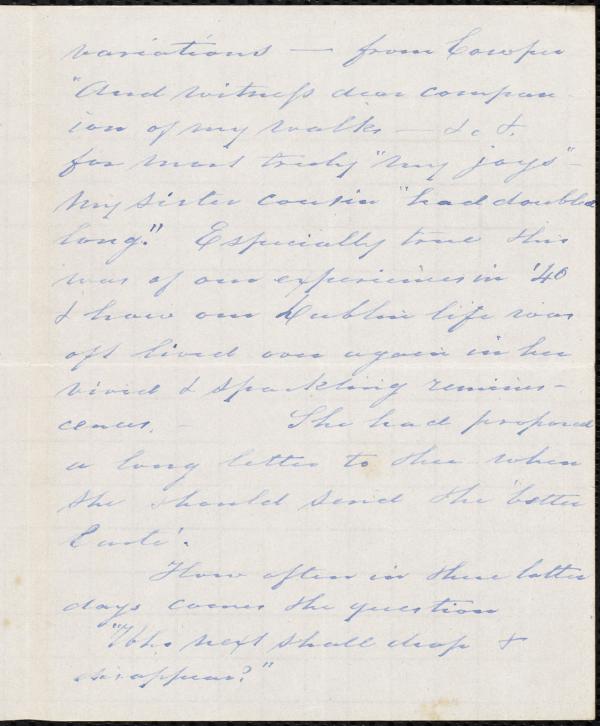 variations — from Cowper
"And witness dear compan-
ion of my walks — &c &.
for most truly "my joys" -
my sister cousin "had doubled
long." Especially true this
was of our experiences in '40
& how our Dublin life was
oft lived over again in her
vivid & sparkling reminis-
cences. - She had proposed
a long letter to thee when
she should send the 'better
Carte'.
How often in these latter
days comes the question
"Who next shall drop &
disappear?"